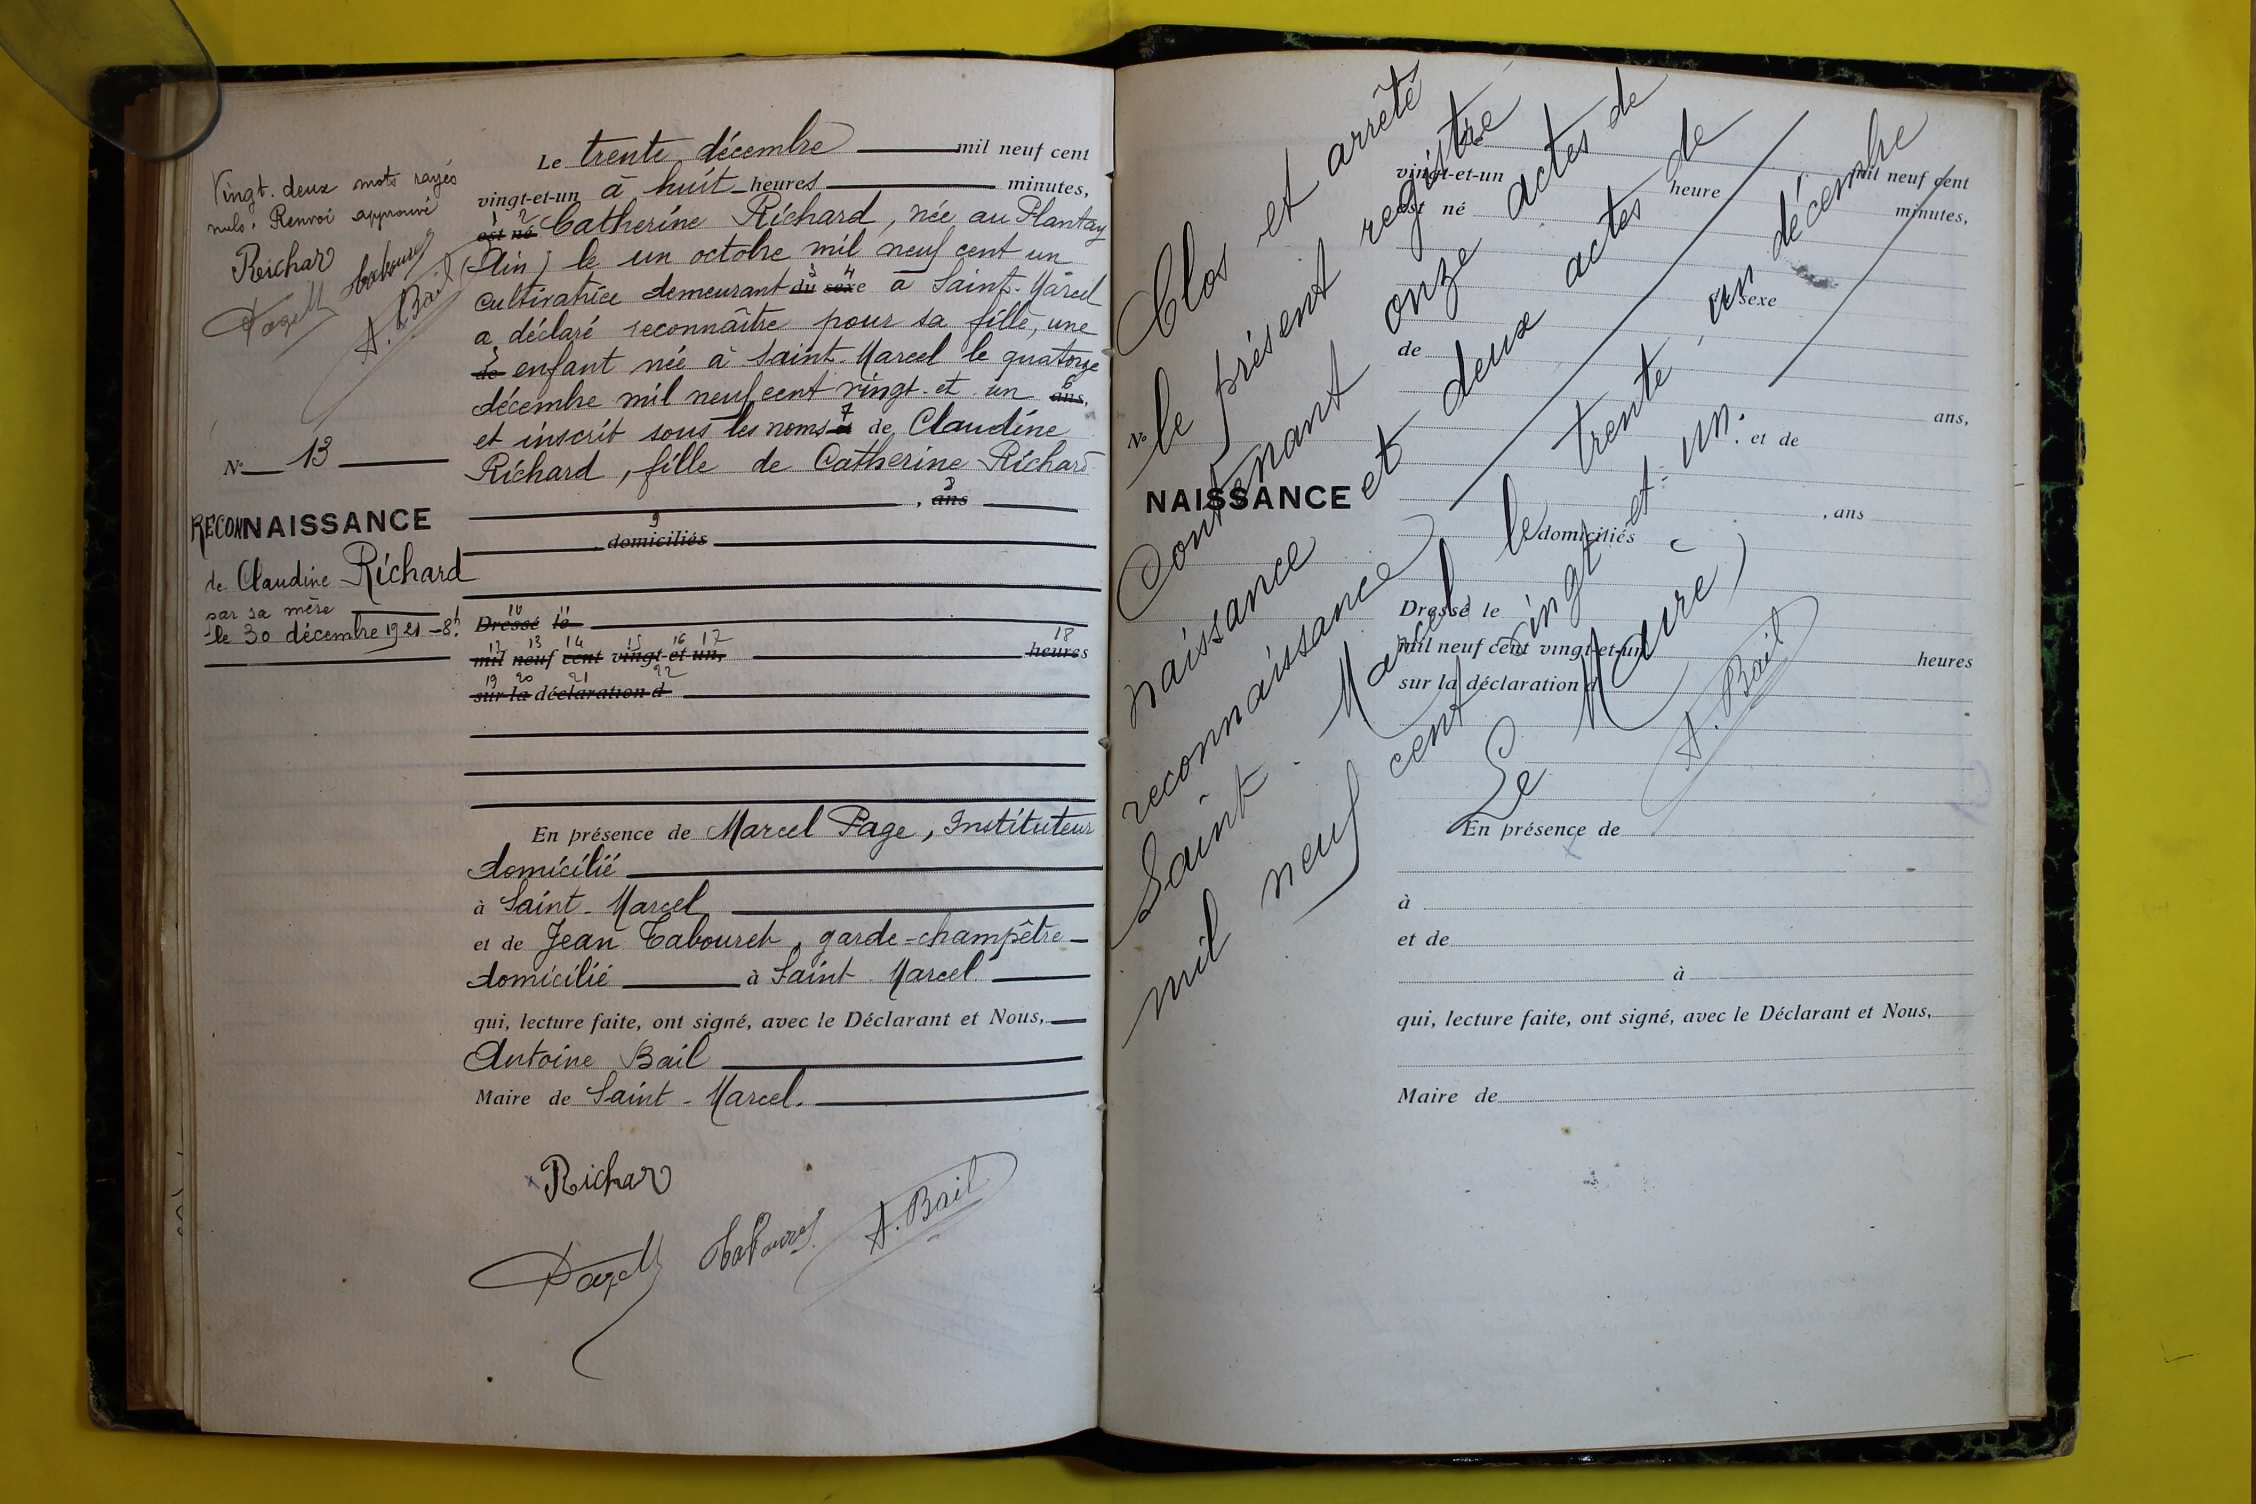 Vingt-deux mots rayés
nuls. Renvoi approuvé
Richar
Tabouret
A. Bail
N° 13
RECONNAISSANCE
de Claudine Richard
par sa mère
le 30 décembre 1921 - 8h.
Le trente décembre mil neuf cent
vingt-et-un à huit heures minutes,
1 2
est né Catherine Richard, née au Plantay
(Ain) le un octobre mil neuf cent un
3 4
cultivatrice demeurant du sexe à Saint-Marcel
a déclaré reconnaître pour sa fille, une
5
de enfant née à Saint-Marcel le quatorze
6
décembre mil neuf cent vingt-et-un ans,
7
et inscrit sous les noms de Claudine
Richard, fille de Catherine Richard
, ans
9
domiciliés
10 11
Dressé le
12 13 14 15 16 17 18
mil neuf cent vingt-et-un, heures
19 20 21 22
sur la déclaration d
En présence de Marcel Page, Instituteur
domicilié
à Saint-Marcel
et de Jean Tabouret, garde-champêtre
domicilié à Saint-Marcel
qui, lecture faite, ont signé, avec le Déclarant et Nous,
Antoine Bail
Maire de Saint-Marcel.
Richar
Tabouret
A. Bail
Clos et arrêté
le présent registre
contenant onze actes de
naissance et deux actes de
reconnaissance
Saint-Marcel, le trente un décembre
mil neuf cent vingt-et-un.
Le Maire
A. Bail
Le mil neuf cent
vingt-et-un heure minutes,
est né
sexe
de
ans,
N°
et de
NAISSANCE
, ans
domiciliés
Dressé le
mil neuf cent vingt-et-un heures
sur la déclaration d
En présence de
à
et de
à
qui, lecture faite, ont signé, avec le Déclarant et Nous,
Maire de